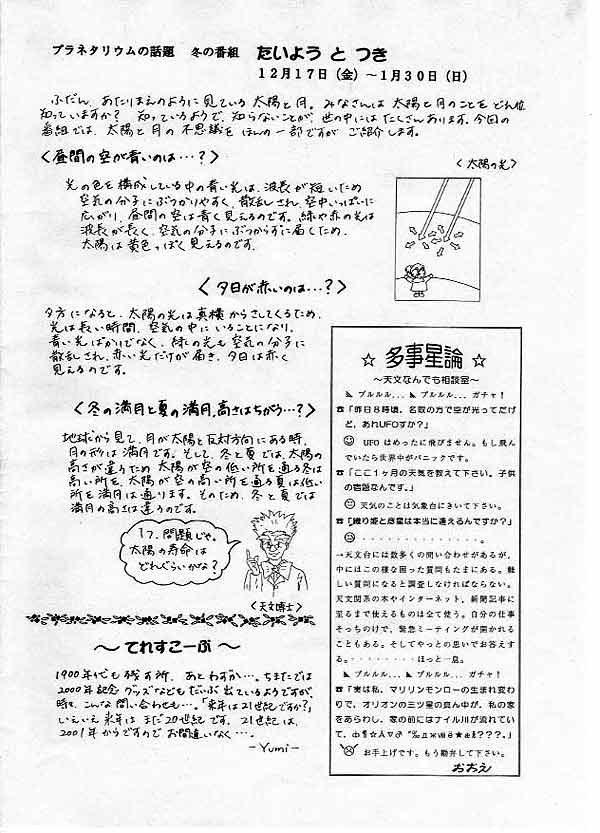 プラネタリウムの話題　冬の番組　たいよう と つき
１２月１７日（金）～１月３０日（日）
ふだん、あたりまえのように見ている太陽と月。みなさんは太陽と月のことをどれ位
知っていますか？　知っているようで、知らないことが、世の中にはたくさんあります。今回の
番組では、太陽と月の不思議をほんの一部ですがご紹介します。
〈昼間の空が青いのは…？〉
光の色を構成している中の青い光は、波長が短いため
空気の分子にぶつかりやすく、散乱され、空中いっぱいに
広がり、昼間の空は青く見えるのです。緑や赤の光は
波長が長く、空気の分子にぶつからずに届くため、
太陽は黄色っぽく見えるのです。
〈太陽の光〉
〈夕日が赤いのは…？〉
夕方になると、太陽の光は真横からさしてくるため、
光は長い時間、空気の中にいることになり、
青い光ばかりでなく、緑の光も空気の分子に
散乱され、赤い光だけが届き、夕日は赤く
見えるのです。
〈冬の満月と夏の満月、高さはちがう…？〉
地球から見て、月が太陽と反対方向にある時、
月の形は満月です。そして、冬と夏では、太陽の
高さが違うため 太陽が空の低い所を通る冬は
高い所を、太陽が空の高い所を通る夏は低い
所を満月は通ります。そのため、冬と夏では
満月の高さは違うのです。
１７．問題じゃ。
太陽の寿命は
どれぐらいかな？
〈天文博士〉
～てれすこーぷ～
1900年代も残す所、あとわずか…。ちまたでは
2000年記念グッズなどもだいぶ出ているようですが、
時々、こんな問い合わせも…。「来年は21世紀ですか？」
いえいえ来年はまだ20世紀です。21世紀は、
2001年からですのでお間違いなく…。
-Yumi-
☆ 多事星論 ☆
～天文なんでも相談室～
プルルル... プルルル... ガチャ！
☎「昨日８時頃、名取の方で空が光ってたけ
ど、あれUFOすか？」
UFO はめったに飛びません。もし飛ん
でいたら世界中がパニックです。
☎「ここ１ヶ月の天気を教えて下さい。子供
の宿題なんです。」
天気のことは気象台にきいて下さい。
☎「織り姫と彦星は本当に逢えるんですか？」
・・・・・・・・・・・・・・・。
→天文台には数多くの問い合わせがあるが、
中にはこの様な困った質問もたまにある。難し
い質問になると調査しなければならない。
天文関系の本やインターネット、新聞記事に
至るまで使えるものは全て使う。自分の仕事
そっちのけで、緊急ミーティングが開かれる
こともある。そしてやっとの思いでお答えす
る。・・・・・・・・ほっと一息。
プルルル... プルルル... ガチャ！
☎「実は私、マリリンモンローの生まれ変わ
りで、オリオンの三ツ星の真ん中が、私の家
をあらわし、家の前にはナイル川が流れてい
て、
お手上げです。もう勘弁して下さい。
おおえ